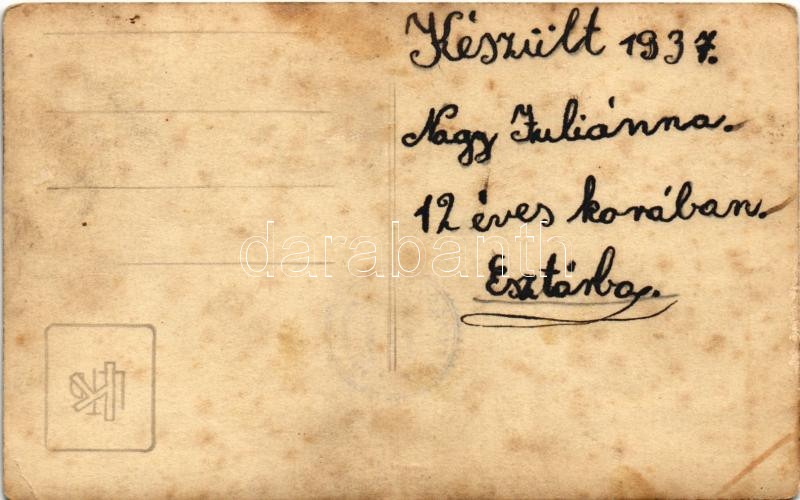 Készült 1937.
Nagy Juliánna.
12 éves korában.
darabanth.com
Esztárba.